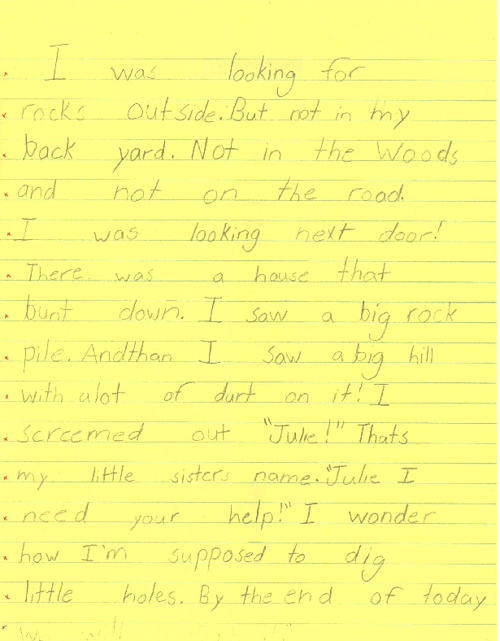 I was looking for
rocks outside. But not in my
back yard. Not in the Woods
and not on the road.
I was looking next door!
There was a house that
bunt down. I saw a big rock
pile. Andthan I saw a big hill
with alot of durt on it! I
screemed out "Julie!" Thats
my little sisters name. "Julie I
need your help!" I wonder
how I'm supposed to dig
little holes. By the end of today
we will